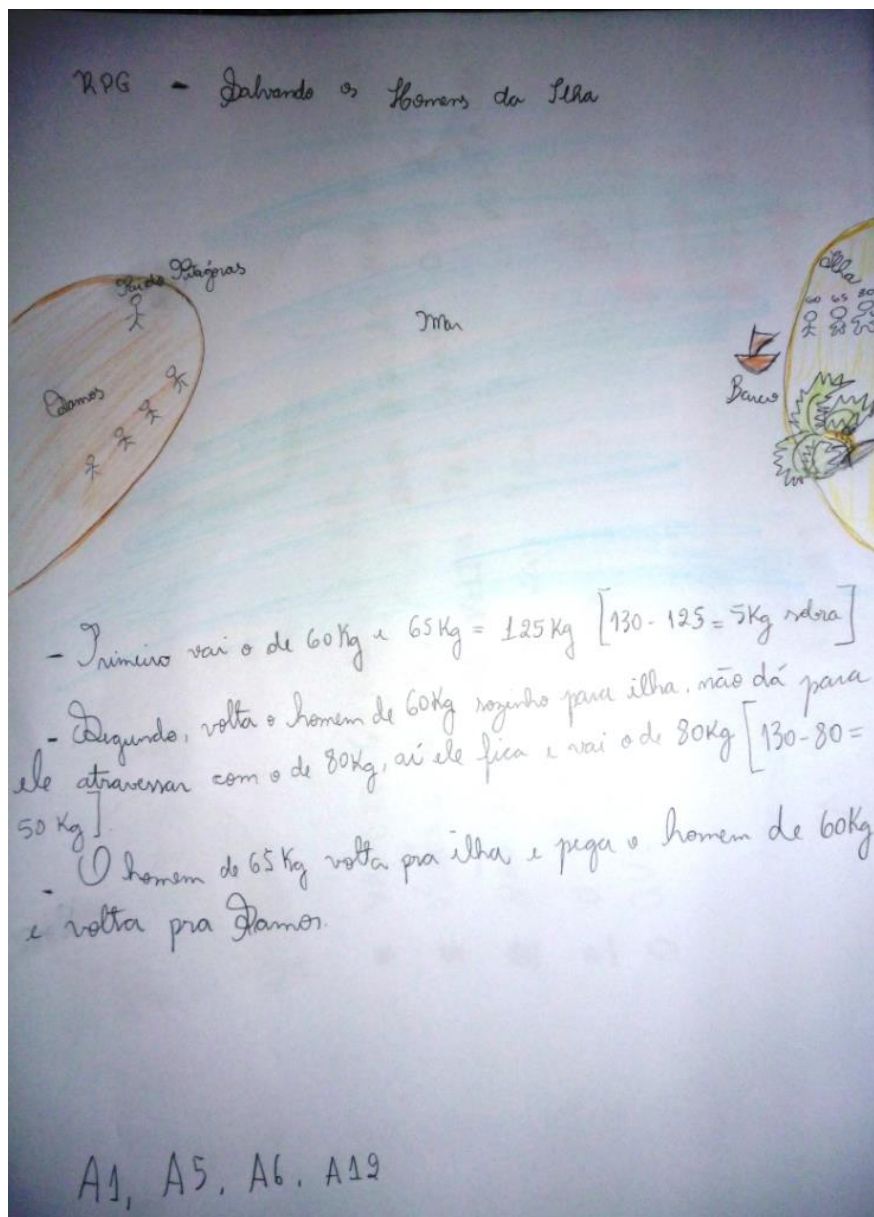 RPG - Salvando os Homens da Ilha
Rei de Pitágoras
Ilha
60 65 80
Mar
Samos
Barco
- Primeiro vai o de 60Kg e 65Kg = 125Kg [130 - 125 = 5Kg sobra]
- Segundo, volta o homem de 60Kg sozinho para ilha, não dá para
ele atravessar com o de 80Kg, aí ele fica e vai o de 80Kg [130 - 80 =
50 Kg].
- O homem de 65Kg volta pra ilha e pega o homem de 60Kg
e volta pra Samos.
A1, A5, A6, A12